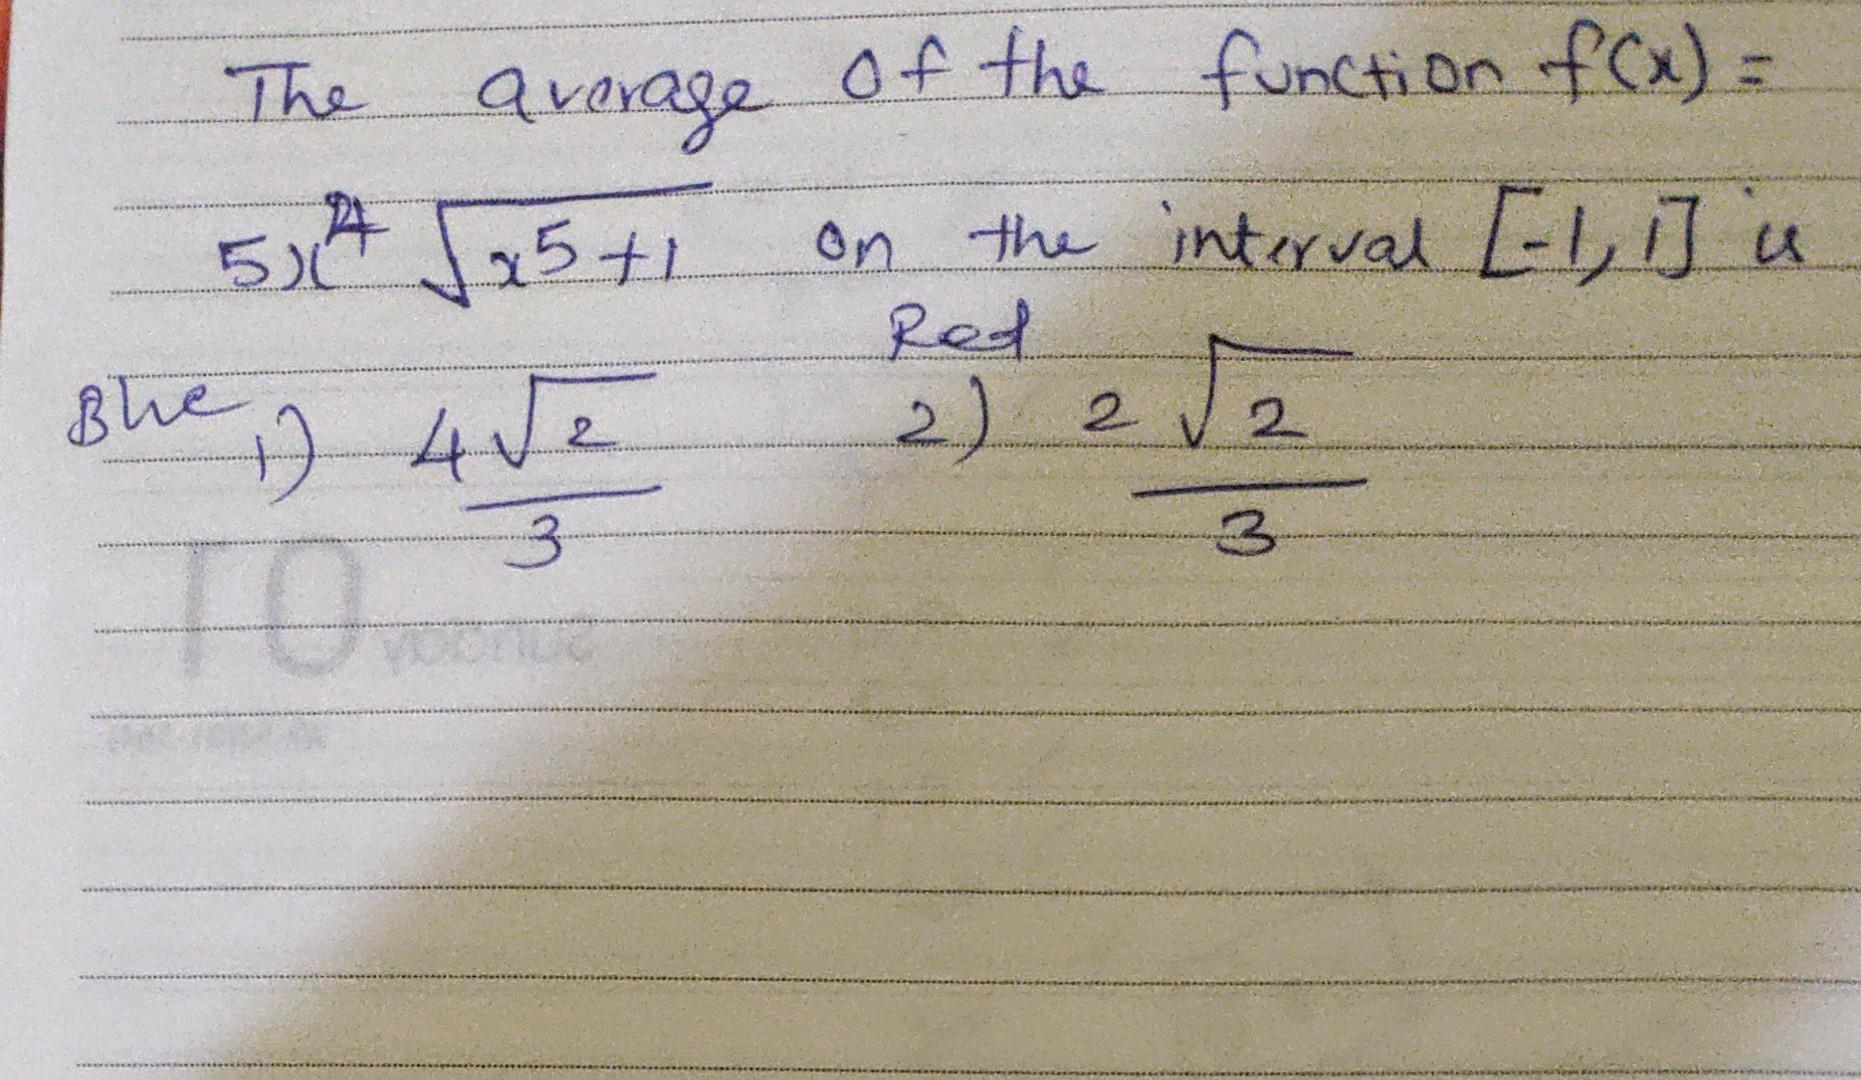 The average of the function f(x) =
5x⁴ √(x⁵+1) on the interval [-1, 1] is
Blue 1) 4√2/3 Red 2) 2√2/3
01